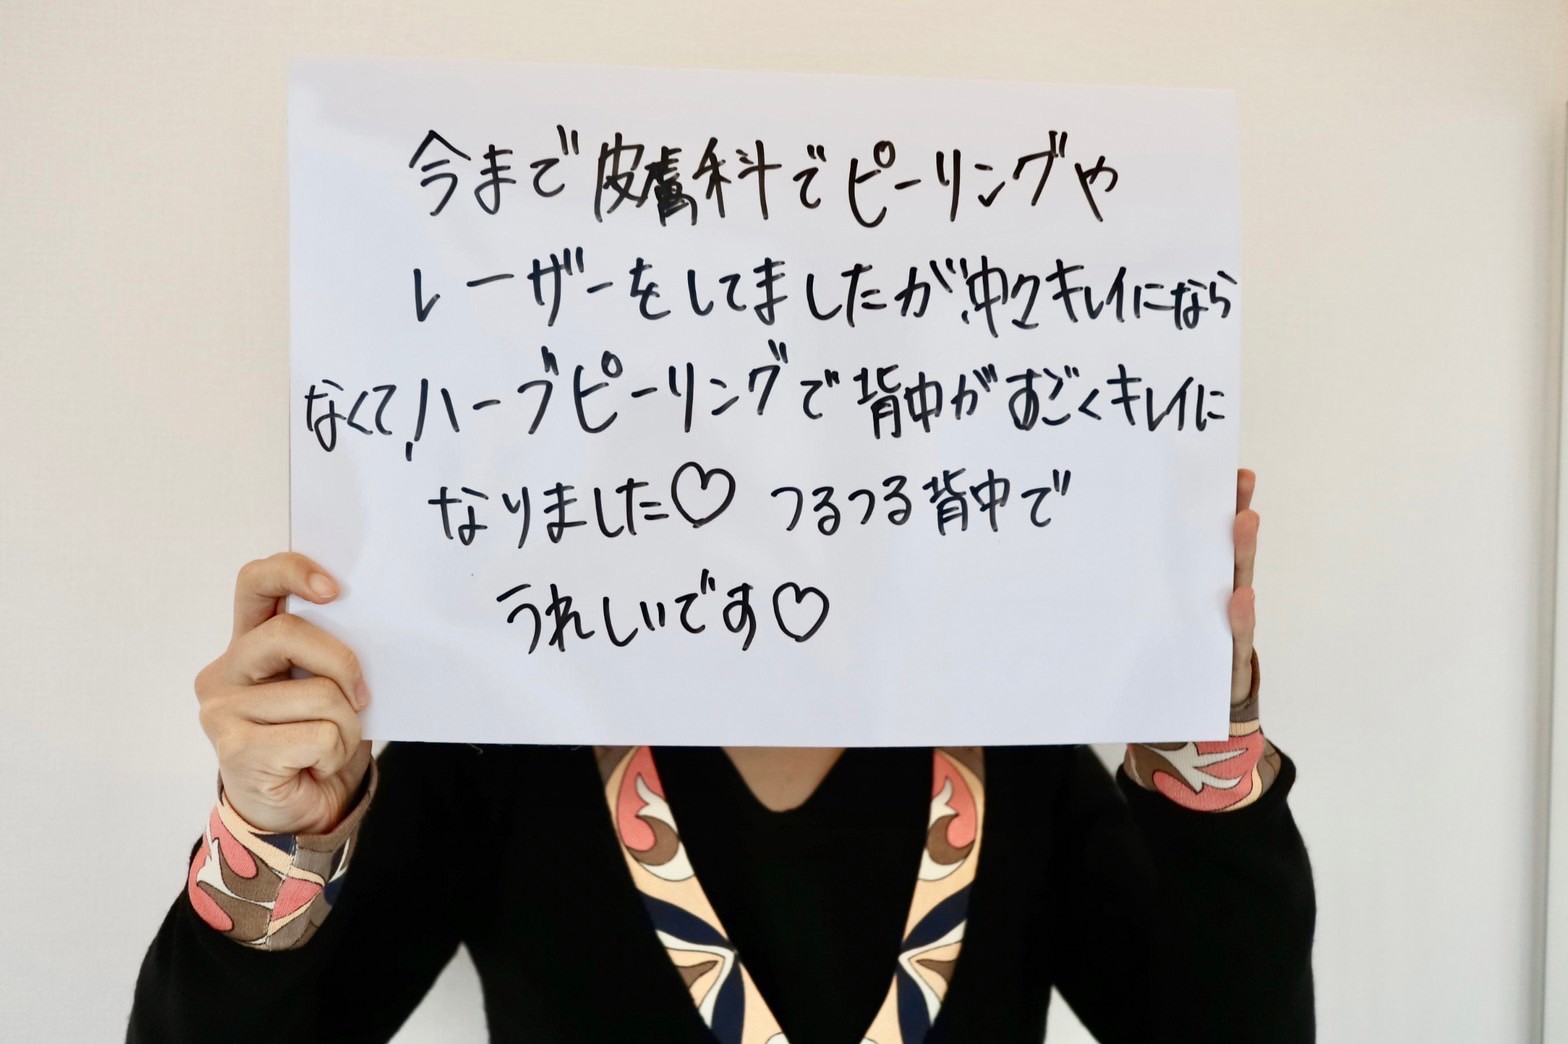 今まで皮膚科でピーリングや
レーザーをしてましたが、中々キレイになら
なくて、ハーブピーリングで背中がすごくキレイに
なりました♡ つるつる背中で
うれしいです♡